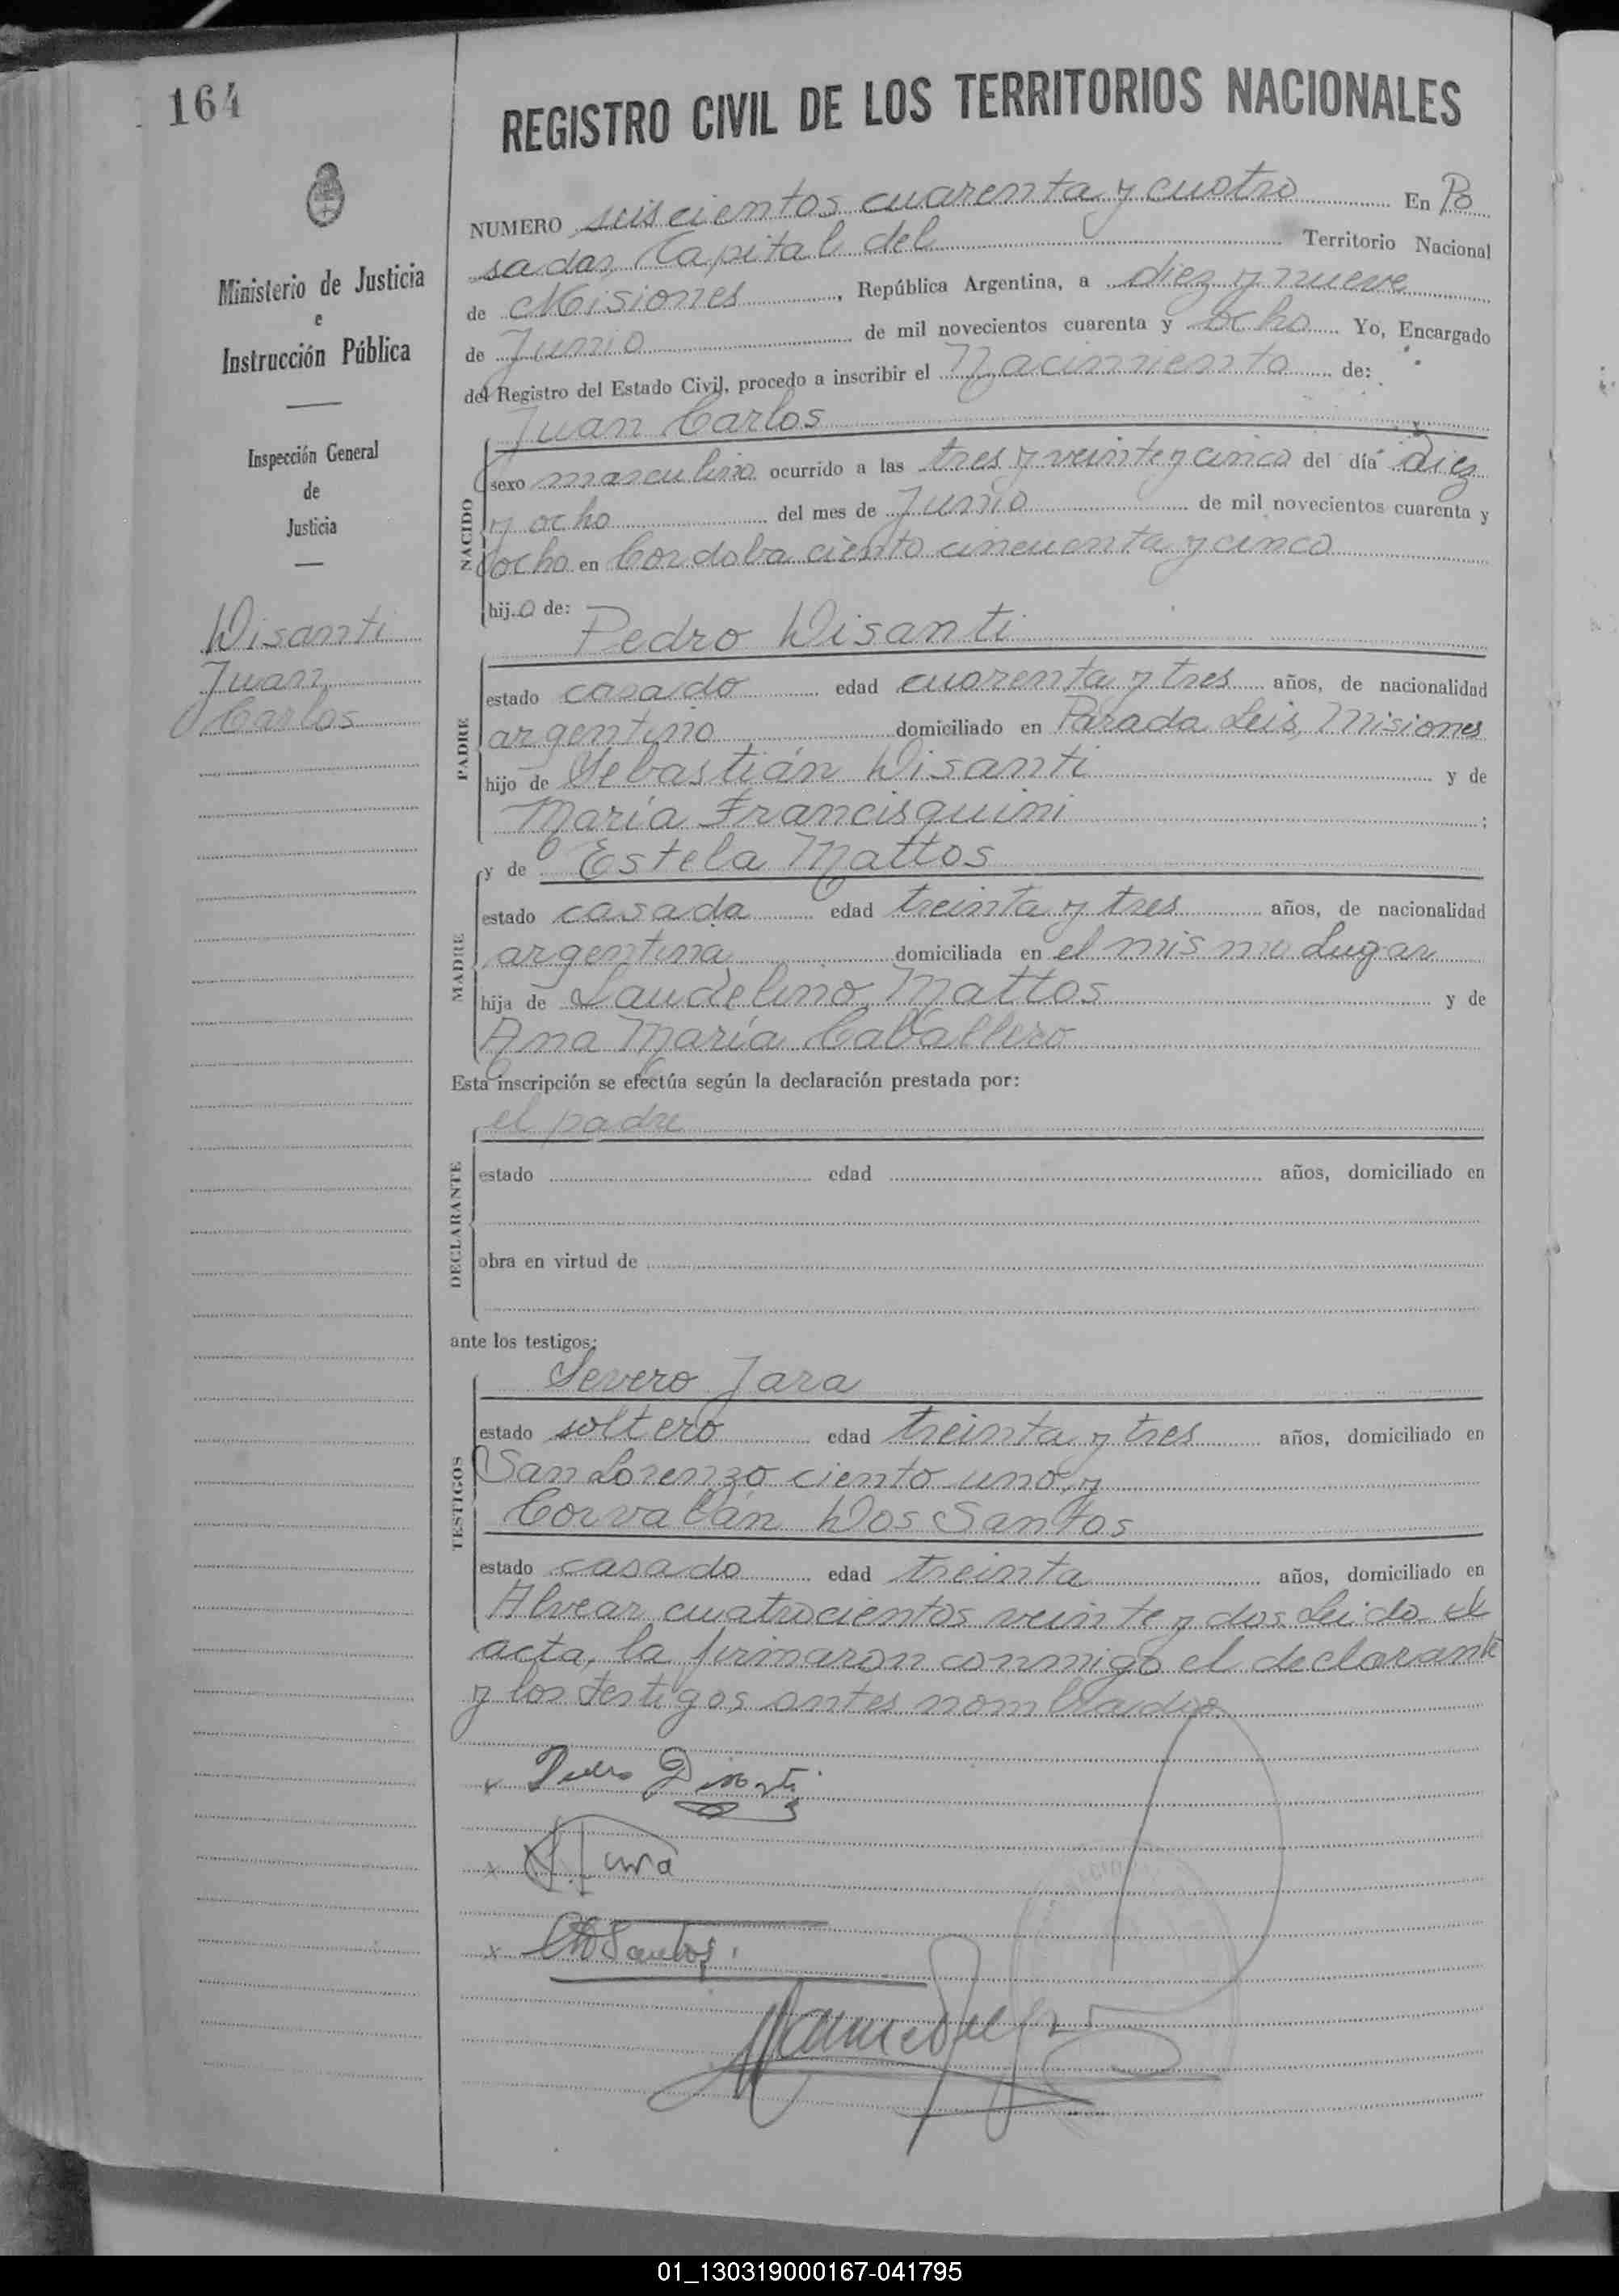 164
REGISTRO CIVIL DE LOS TERRITORIOS NACIONALES
Ministerio de Justicia
e
Instrucción Pública
Inspección General
de
Justicia
Disanti
Juan
Carlos
NUMERO seiscientos cuarenta y cuatro En Po
sadas, Capital del Territorio Nacional
de Misiones, República Argentina, a diez y nueve
de Junio de mil novecientos cuarenta y ocho Yo, Encargado
del Registro del Estado Civil, procedo a inscribir el Nacimiento de:
Juan Carlos
NACIDO
sexo masculino ocurrido a las tres y veinte y cinco del día diez
y ocho del mes de Junio de mil novecientos cuarenta y
ocho en Cordoba ciento cincuenta y cinco
hijo de:
Pedro Disanti
PADRE
estado casado edad cuarenta y tres años, de nacionalidad
argentino domiciliado en Parada Leis, Misiones
hijo de Sebastián Disanti y de
María Francisquini;
y de Estela Mattos
MADRE
estado casada edad treinta y tres años, de nacionalidad
argentina domiciliada en el mismo Lugar
hija de Laudelino Mattos y de
Ana María Caballero
Esta inscripción se efectúa según la declaración prestada por:
el padre
DECLARANTE
estado edad años, domiciliado en
obra en virtud de
ante los testigos:
Severo Jara
TESTIGOS
estado soltero edad treinta y tres años, domiciliado en
San Lorenzo ciento uno y
Corvalán Dos Santos
estado casado edad treinta años, domiciliado en
Alvear cuatrocientos veinte y dos. Leido el
acta, la firmaron conmigo el declarante
y los testigos antes nombrados
x Pedro Disanti
x
x Santos
01_130319000167-041795